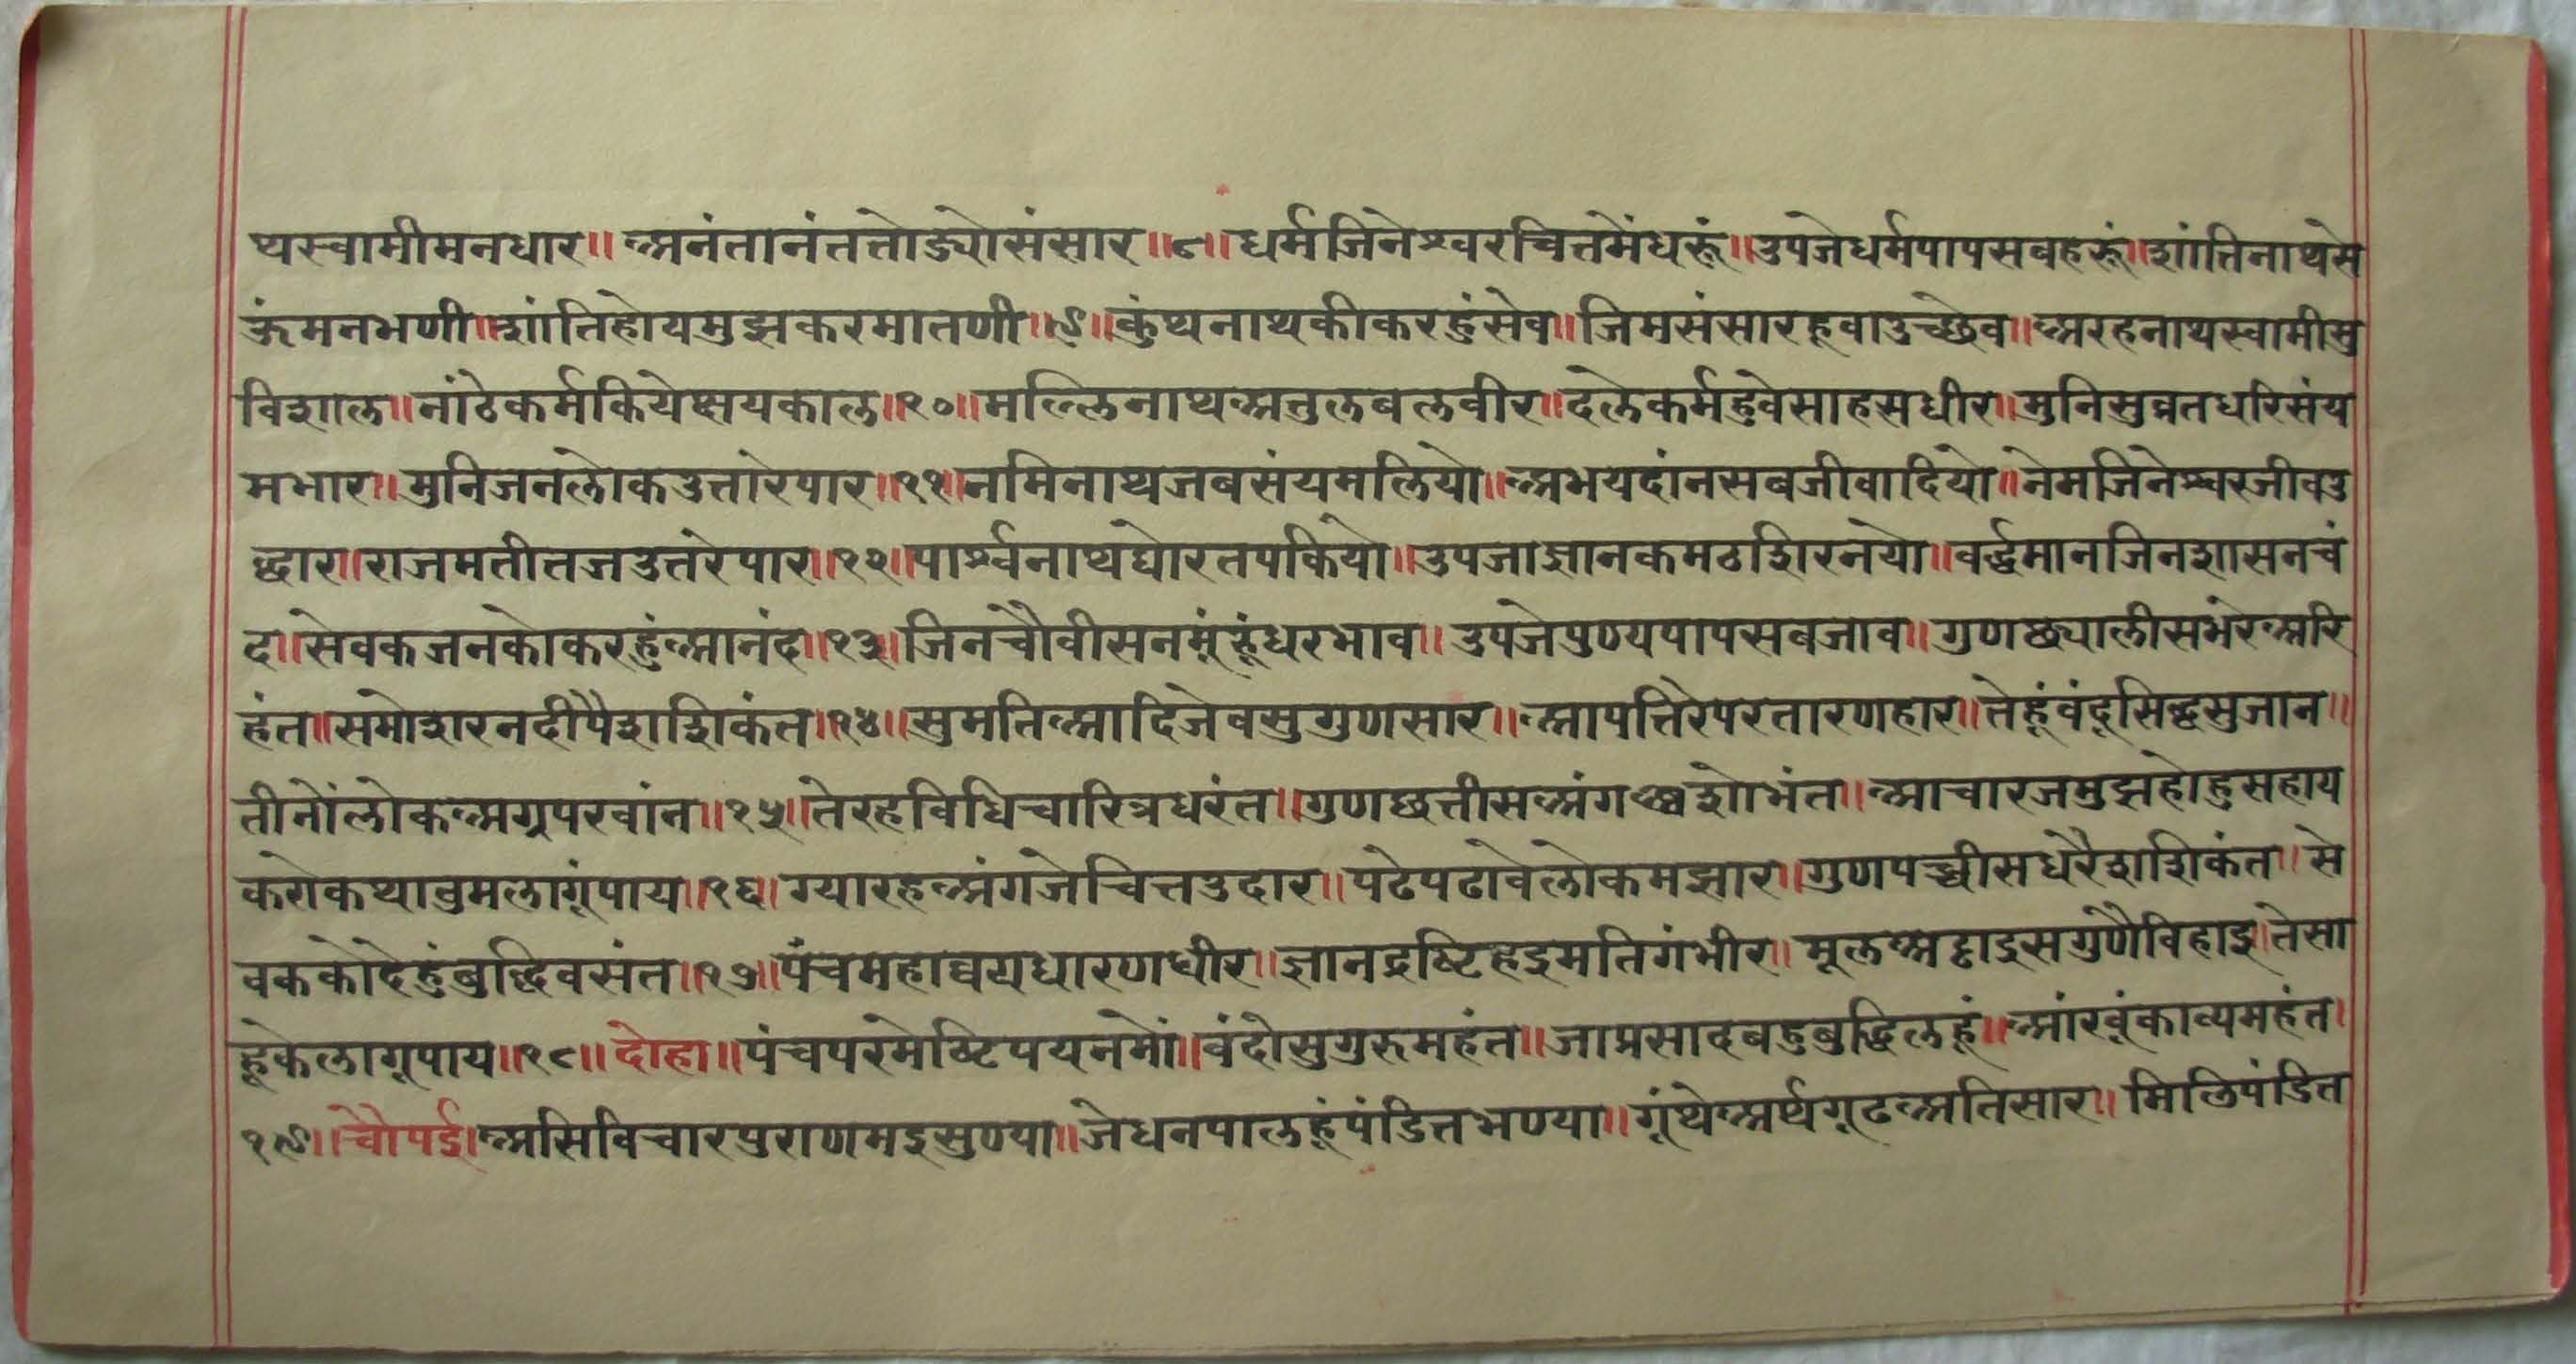 थस्वामीमनधार॥ अनंतानंततोड्योसंसार॥८॥ धर्मजिनेश्वरचितमेंधरूं॥उपजेधर्मपापसबहरूं॥शांतिनाथसे
ऊंमनभणी॥शांतिहोयमुझकरमातणी॥९॥ कुंथनाथकीकरहुंसेव॥जिमसंसारहूवाउच्छेव॥अरहनाथस्वामीसु
विशाल॥नांठेकर्मकियेक्षयकाल॥१०॥मल्लिनाथअतुलबलवीर॥दलेकर्महुवेसाहसधीर॥मुनिसुव्रतधरिसंय
मभार॥मुनिजनलोकउत्तारेपार॥११॥नमिनाथजबसंयमलियो॥अभयदांनसबजीवादियो॥नेमजिनेश्वरजीवउ
द्धार॥राजमतीतजउतरेपार॥१२॥पार्श्वनाथघोरतपकियो॥उपजाज्ञानकमठशिरनयो॥वर्द्धमानजिनशासनचं
द॥सेवकजनकोकरहुंआनंद॥१३॥जिनचौवीसनमूंहूंधरभाव॥ उपजेपुण्यपापसबजाव॥ गुणछ्यालीसभंरेअरि
हंत॥समोशरनदीपैशशिकंत॥१४॥सुमतिआदिजेवसुगुणसार॥ आपत्तिरेपरतारणहार॥तेहूंवंदूसिद्धसुजान॥
तीनोंलोकअग्रपरवांन॥१५॥तेरहविधिचारित्रधरंत॥गुणछत्तीसअंगशोभंत॥ आचारजमुझहोहुसहाय
करोकथातुमलागूंपाय॥१६॥ग्यारहअंगजेचित्तउदार॥पढेपढावेलोकमझार॥गुणपच्चीसधरैशशिकंत॥से
वककोदेहुंबुद्धिवसंत॥१७॥पंचमहाव्वयधारणधीर॥ज्ञानद्रष्टिहेइमतिगंभीर॥ मूलअट्ठाइसगुणैविहाइ॥तेसा
हूकेलागूपाय॥१८॥ दोहा॥पंचपरमेष्टिपयनमों॥वंदोसुगुरुमहंत॥जाप्रसादबडुबुद्धिलहूं॥आंरवूंकाव्यमहंत॥
१९॥ चौपई॥असिविचारपुराणमइसुण्या॥जेधनपालहूंपंडितभण्या॥ग्रंथेअर्थगूढअतिसार॥ मिलिपंडित